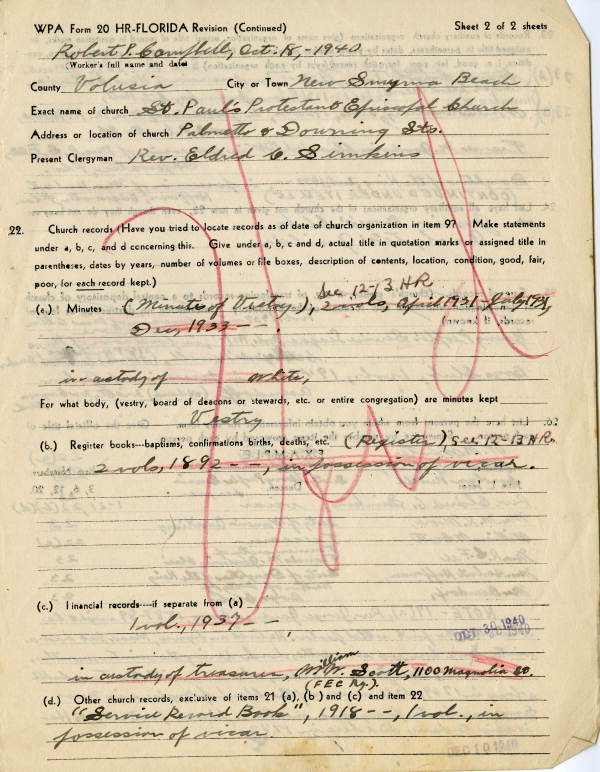 WPA Form 20 HR-FLORIDA Revision (Continued) Sheet 2 of 2 sheets
Robert P. Campbell, Oct. 18, - 1940
(Worker's full name and date)
County Volusia City or Town New Smyrna Beach
Exact name of church St. Paul's Protestant Episcopal Church
Address or location of church Palmetto & Downing Sts.
Present Clergyman Rev. Eldred C. Simkins
22. Church records (Have you tried to locate records as of date of church organization in item 9? Make statements
under a, b, c, and d concerning this. Give under a, b, c and d, actual title in quotation marks or assigned title in
parentheses, dates by years, number of volumes or file boxes, description of contents, location, condition, good, fair,
poor, for each record kept.)
See 12-13 HR
(a.) Minutes (Minutes of Vestry), 2 vols, April 1921 - July 1931,
Dec, 1933 - - .
in custody of White,
For what body, (vestry, board of deacons or stewards, etc. or entire congregation) are minutes kept
Vestry
(b.) Register books---baptisms, confirmations births, deaths, etc. (Register), See 12-13 HR.
2 vols, 1892 - -, in possession of vicar.
(c.) Financial records----if separate from (a)
1 vol., 1937 - -
OCT 30 1940
William
in custody of treasurer, W.W. Scott, 1100 Magnolia St.
(F E C Ry.).
(d.) Other church records, exclusive of items 21 (a), (b) and (c) and item 22
"Service Record Book", 1918 - -, 1 vol., in
possession of vicar.